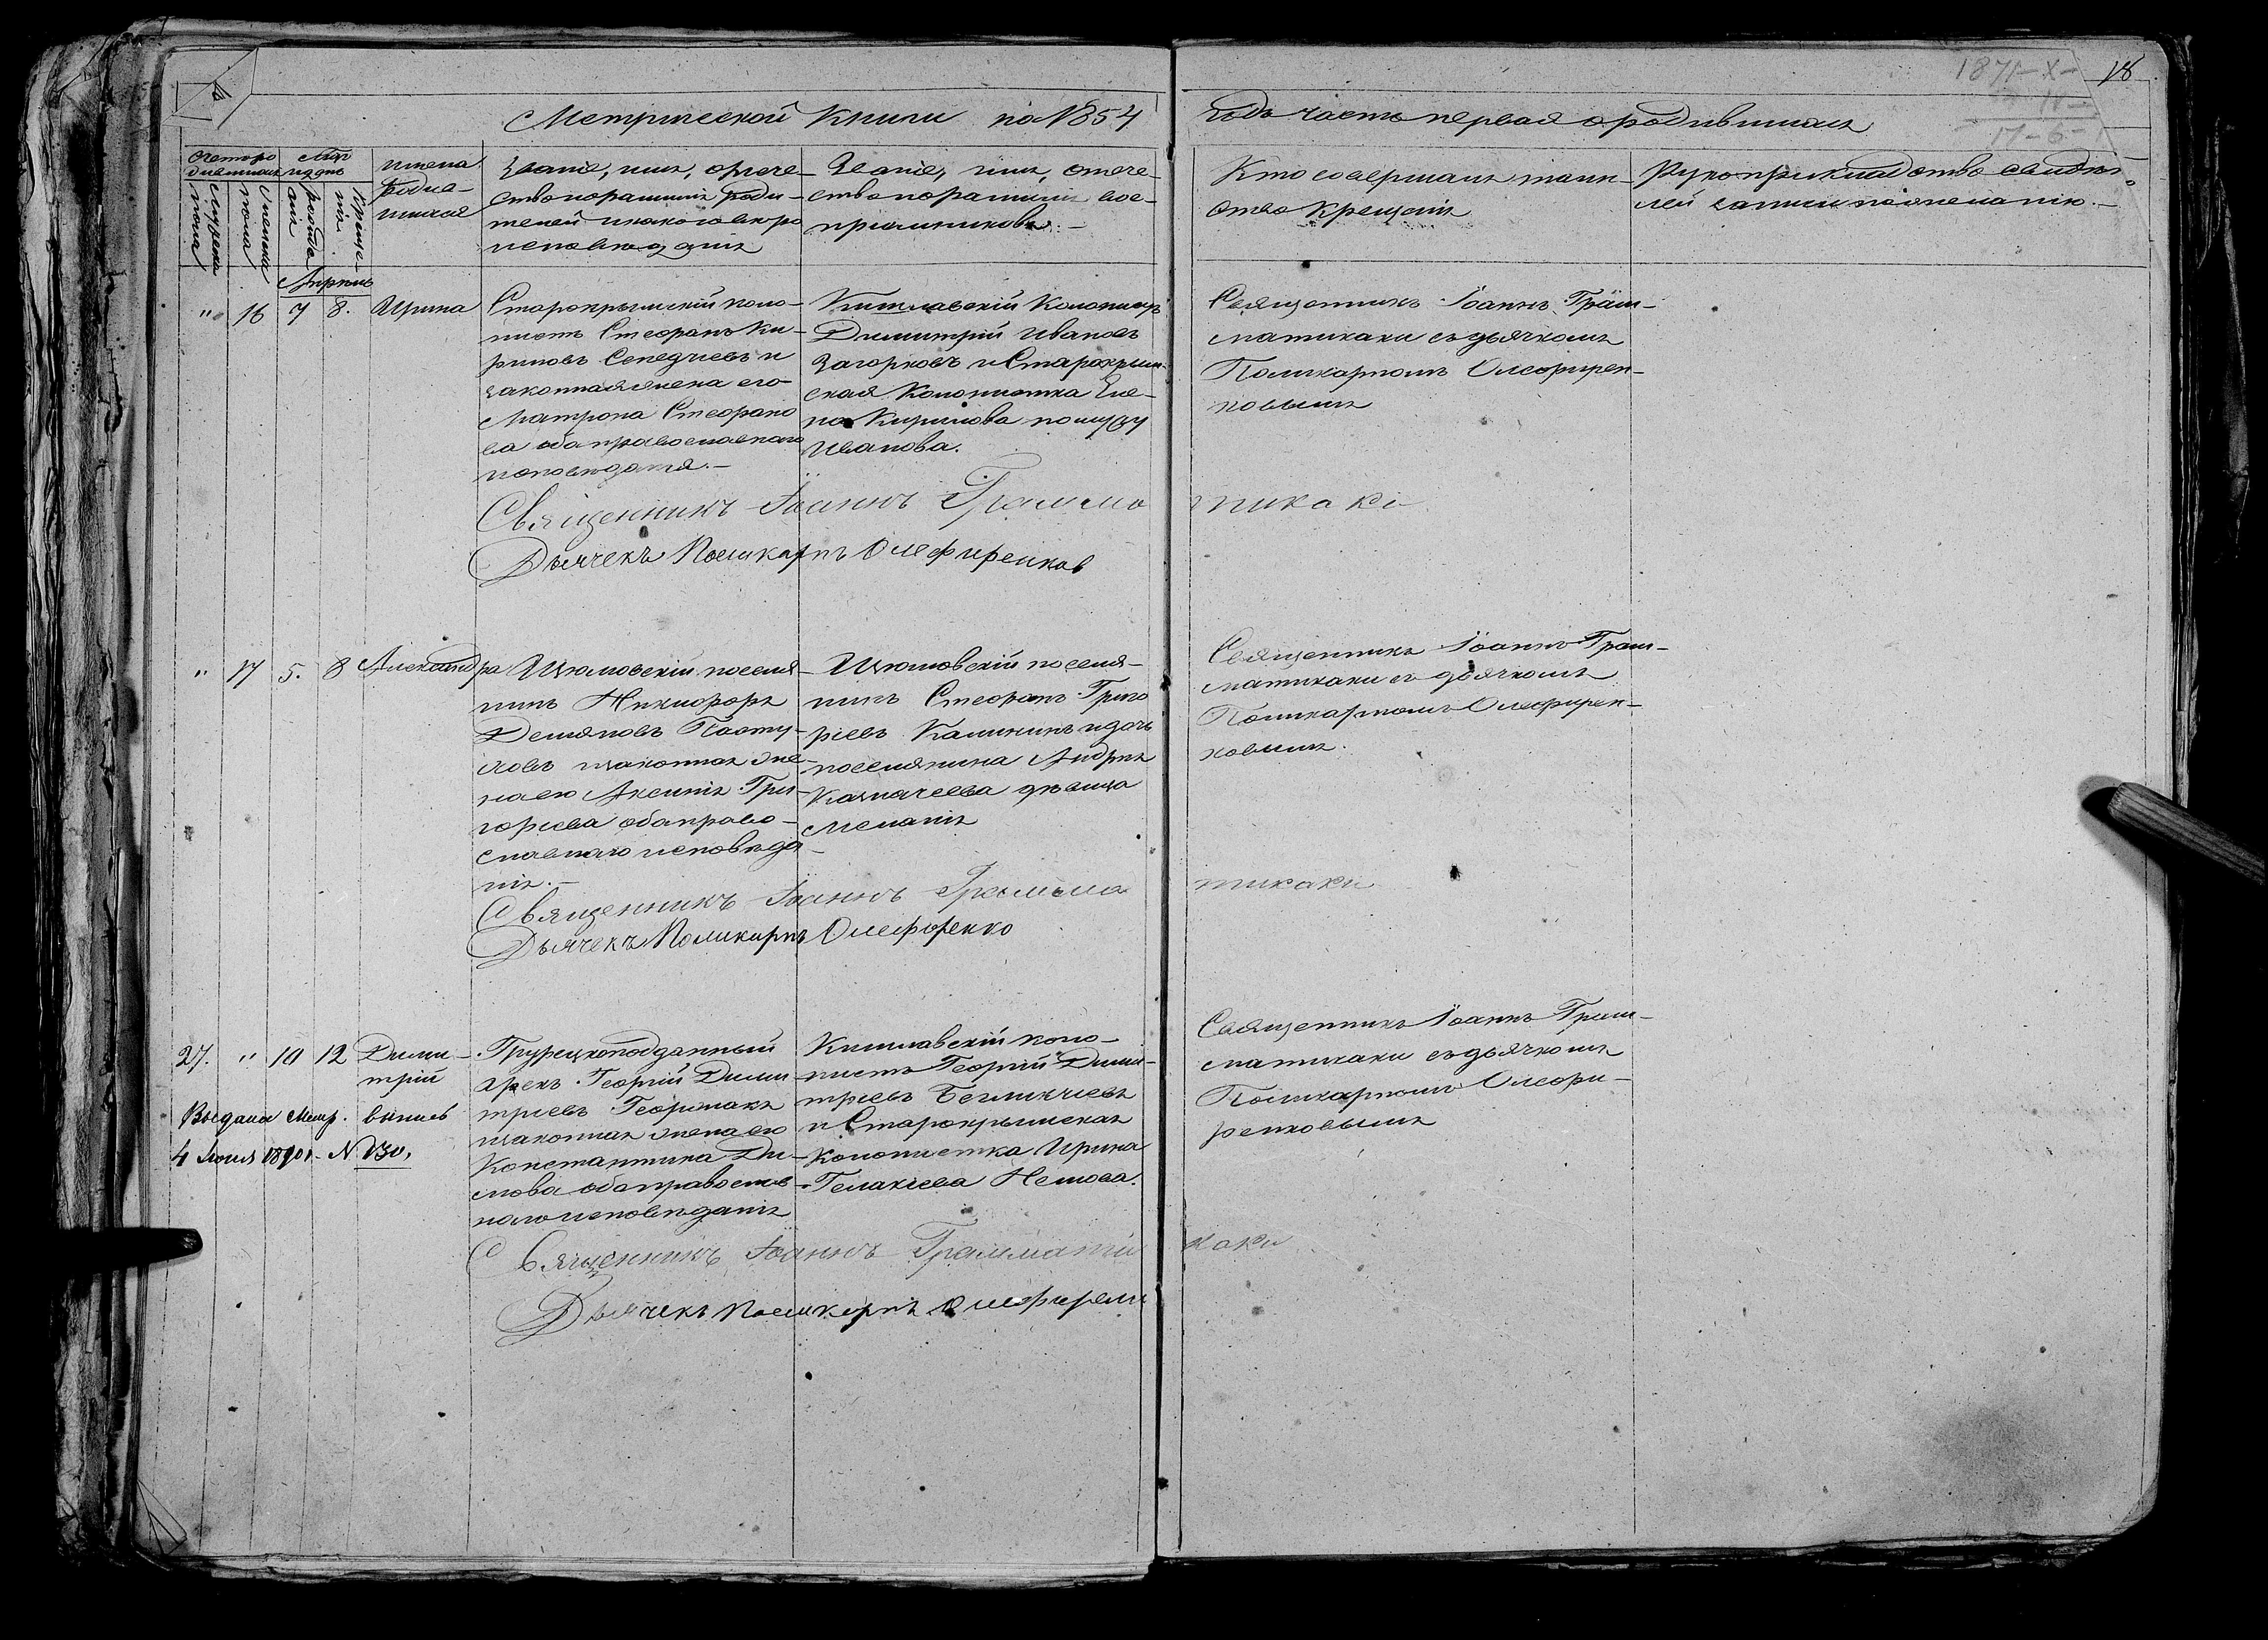 1871-X-
18
11-
17-6-
Метрической Книги на 1854
Годъ часть первая о родившихся
Счетъ ро
дившихся
Мѣс
и день
Мужеска
пола
Женска
пола
рожде
нія
Креще
нія
имена
родив-
шихся
Званіе, имя, отече-
ство и фамилія роди-
телей и какого вѣро
исповѣданія
Званіе, имя, отече-
ство и фамилія вос-
приемниковъ.-
Кто совершалъ таин-
ство Крещенія
Рукоприкладство свидѣте-
лей записи по желанію.-
Апрѣль
" 16 7 8. Ирина
Старокрымскій коло-
нистъ Стефанъ Ки-
риловъ и
законная жена его
Матрона Стефано
ва оба православнаго
исповѣданія.-
Кишлавскій Колонистъ
Димитрій Ивановъ
Загорновъ и Старокрым-
ская Колонистка Еле-
на Кирилова по мужу
Иванова.
Священникъ Іоаннъ Грам-
матикаки съ дьячкомъ
Поликарпомъ Олефирен-
ковымъ
Священникъ Іоаннъ Грамма
тикаки
Дьячекъ Поликарпъ Олефиренков
" 17 5. 8 Александра
Изюмовскій поселя-
нинъ Никифоръ
Демяновъ Пасту-
ховъ и законная же-
на его Аксинія Гри-
горіева оба право-
славнаго исповѣда-
нія.-
Изюмовскій поселя-
нинъ Стефанъ Григо
ріевъ Калининъ и дочь
поселянина Андрея
дѣвица
Меланія
Священникъ Іоаннъ Грам-
матикаки съ дьячкомъ
Поликарпомъ Олефирен-
ковымъ.
Священникъ Іоаннъ Грамма
тикаки
Дьячекъ Поликарпъ Олефиренко
27. " 10 12 Дими-
трій
Турецкоподданный
грекъ Георгій Дими
тріевъ
и законная жена его
Константина Ди-
мова оба православ-
наго исповѣданія
Кишлавскій коло-
нистъ Георгій Дими-
тріевъ Бегликчіевъ
и Старокрымская
Колонистка Ирина
Телакіева Немова.
Священникъ Іоаннъ Грам-
матикаки съ дьячкомъ
Поликарпомъ Олефи-
ренковымъ
Выдана Метр. выпись
4 Іюня 1870 г. N 130,
Священникъ Іоаннъ Граммати
каки
Дьячекъ Поликарпъ Олефирен